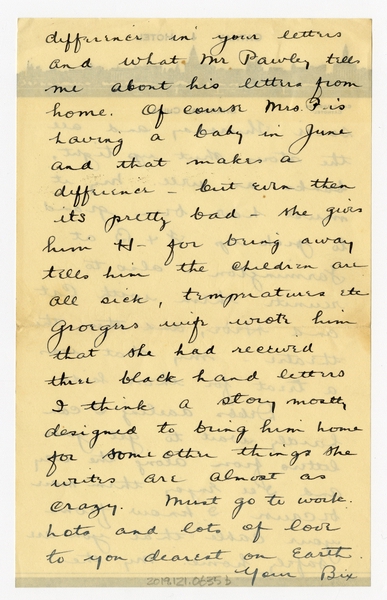 difference in your letters
and what Mr Pawley tells
me about his letters from
home. Of course Mrs. P is
having a baby in June
and that makes a
difference - but even then
its pretty bad - she gives
him H- for being away
tells him the children are
all sick, temperatures etc
Groegers wife wrote him
that she had received
three black hand letters
I think a story mostly
designed to bring him home
for some other things she
writes are almost as
crazy. Must go to work.
Lots and lots of love
to you dearest on Earth.
Your Bix
2019.121.0635b